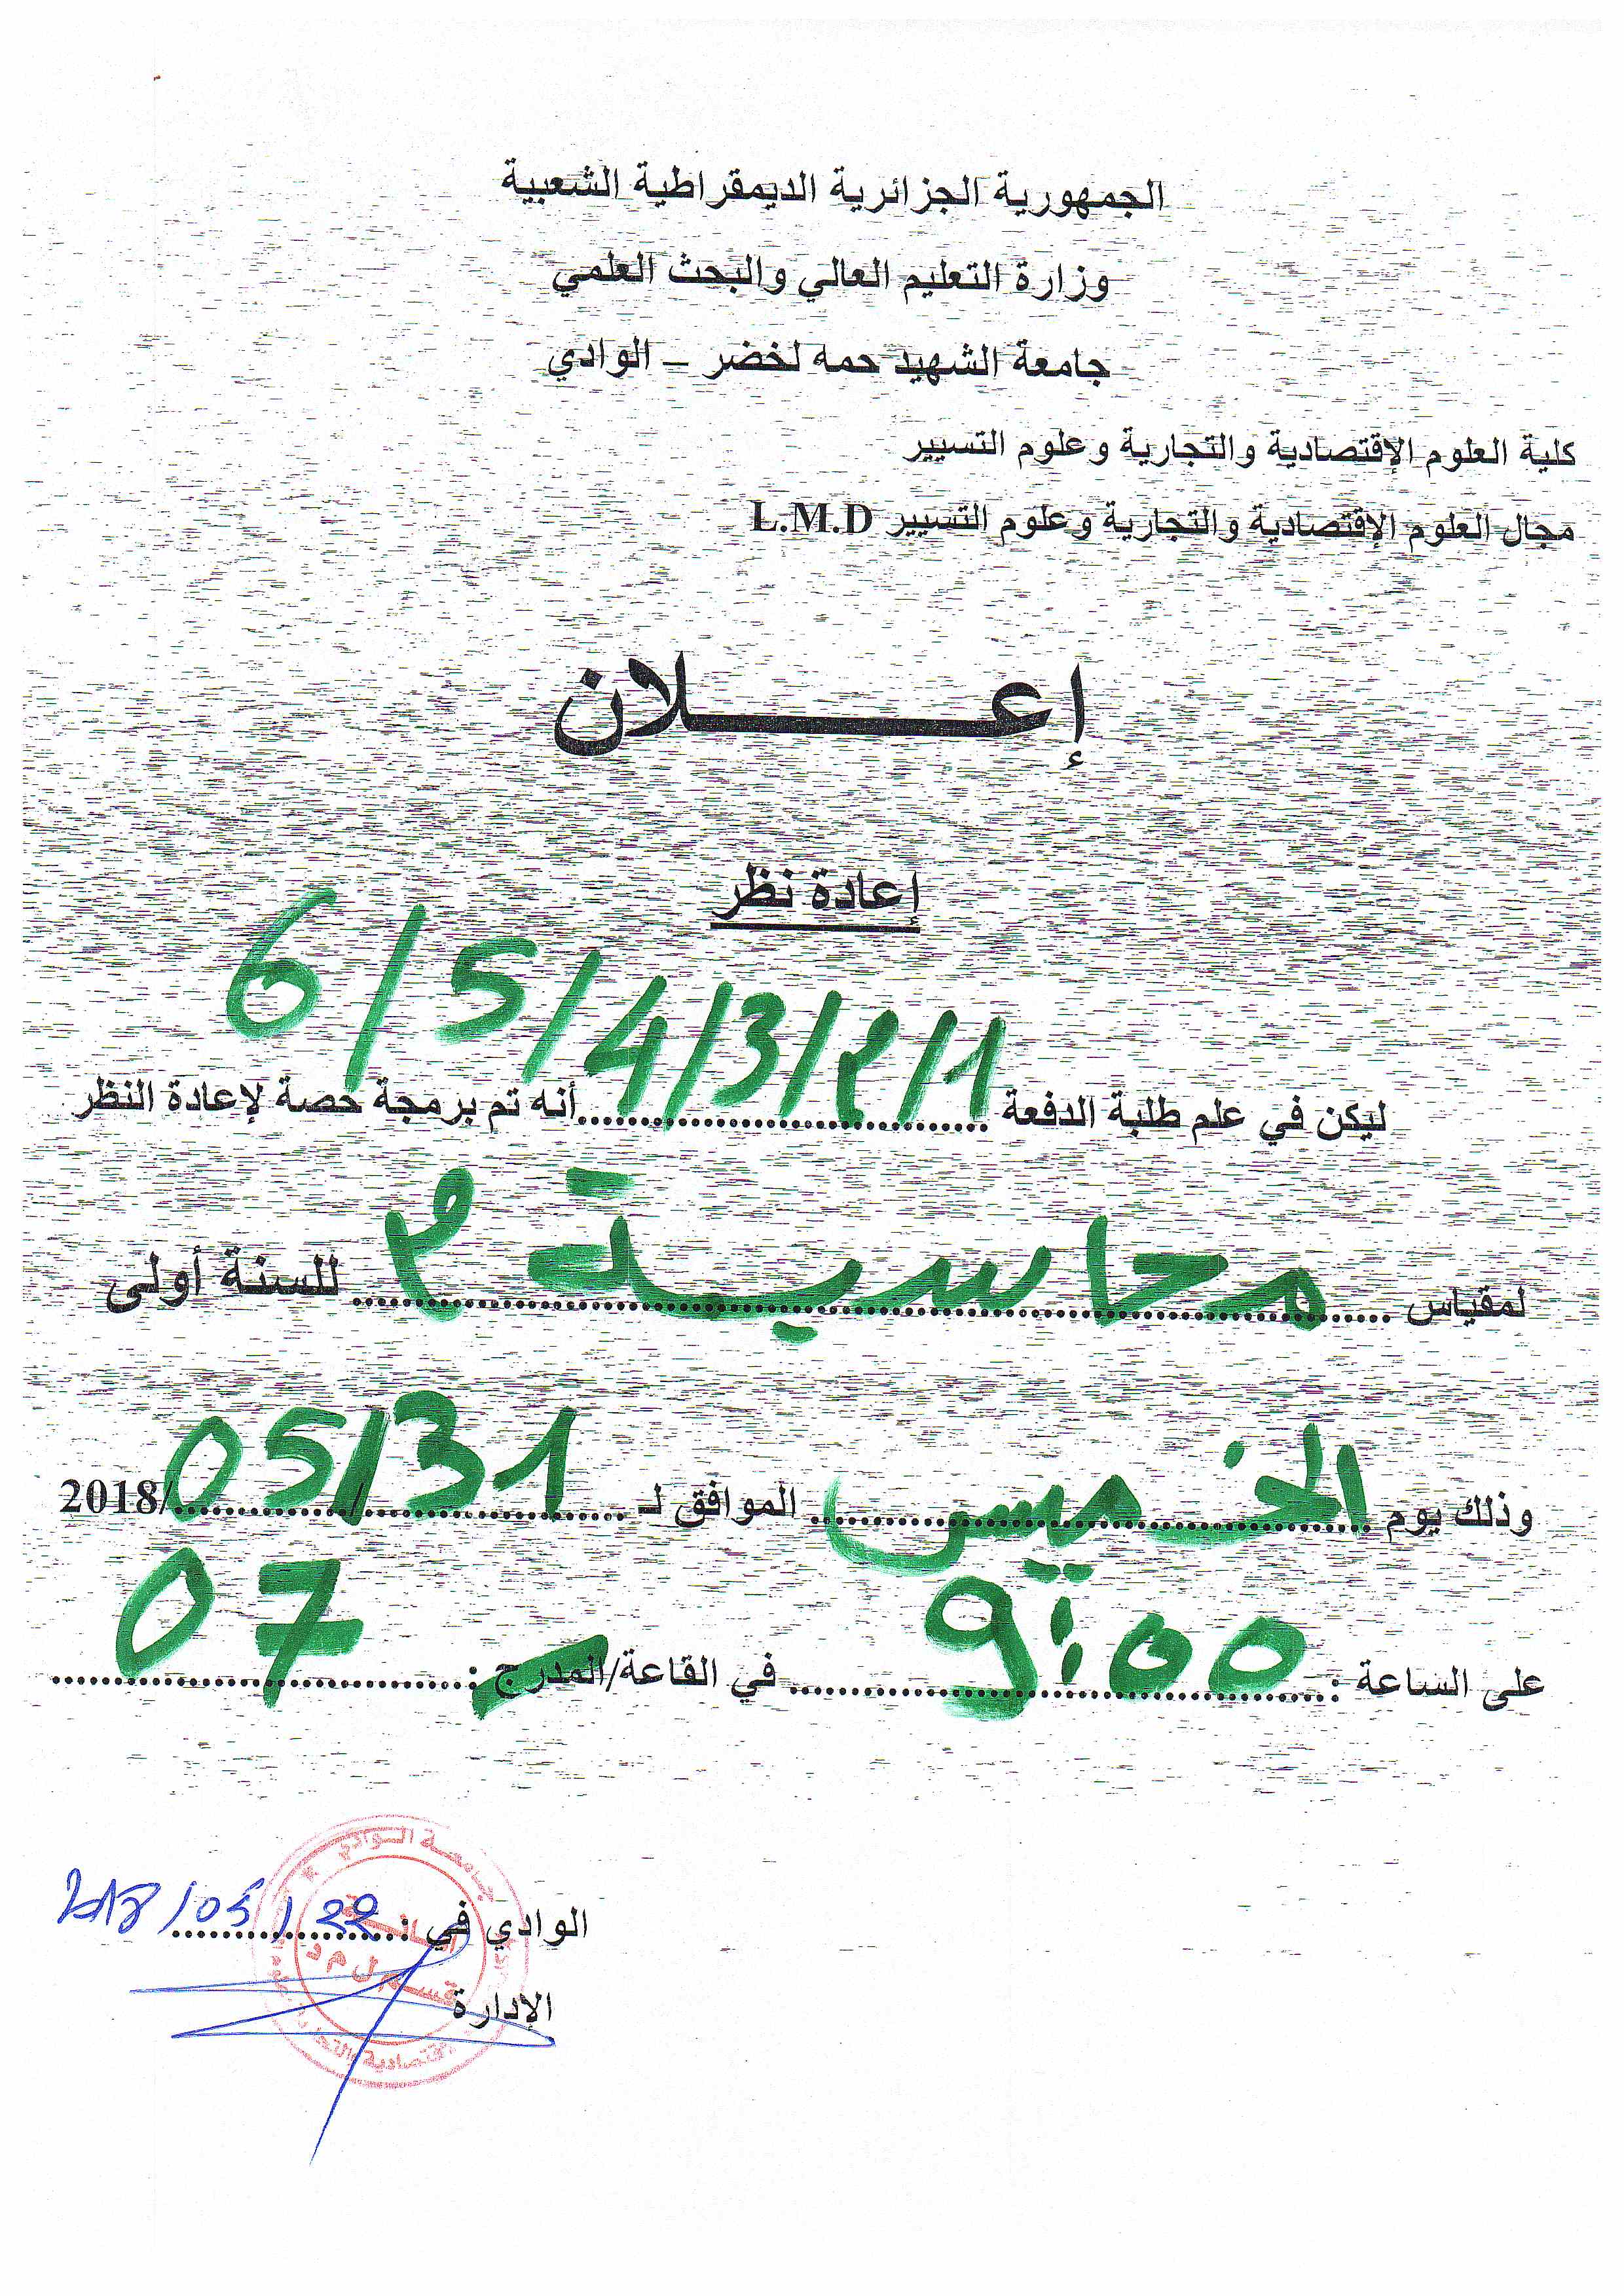 الجمهورية الجزائرية الديمقراطية الشعبية
وزارة التعليم العالي والبحث العلمي
جامعة الشهيد حمه لخضر – الوادي
كلية العلوم الإقتصادية والتجارية وعلوم التسيير
مجال العلوم الإقتصادية والتجارية وعلوم التسيير L.M.D
إعـــــــلان
إعادة نظر
ليكن في علم طلبة الدفعة 1/2/3/4/5/6 أنه تم برمجة حصة لإعادة النظر
لمقياس محاسبة 2 للسنة أولى
وذلك يوم الخميس الموافق لـ 31/05/2018
على الساعة : 9:00 في القاعة/المدرج : 07
الوادي في : 22/05/2018
الإدارة
جامعة الوادي
قسم ل م د